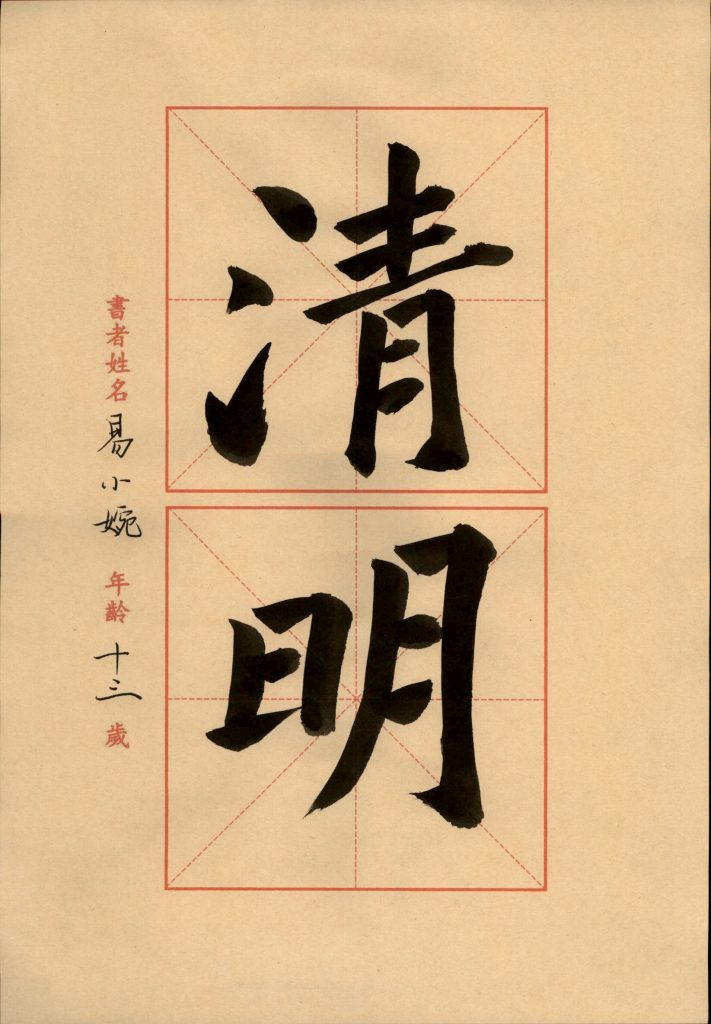 清明
書者姓名 易小婉 年齡 十三 歲